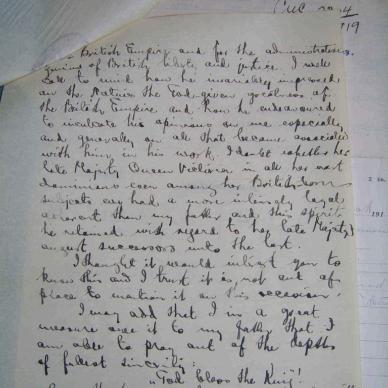 CMC 20.4
/19
British Empire and for the administration
genius of British liberty and justice. I well
call to mind how he invariably impressed
on the Natives the God given goodness of
the British Empire and how he endeavoured
to inculcate his opinions on me especially
and generally on all that became associated
with him in his work. I doubt whether her
late Majesty Queen Victoria in all her vast
dominions even among her British born
subjects ever had a more intensely loyal
adherent than my father and this spirit
he retained with regard to her late Majesty's
august successors unto the last.
I thought it would interest you to
know this and I trust it is not out of
place to mention it on this occasion.
I may add that I in a great
measure owe it to my father that I
am able to pray out of the depths
of fullest sincerity:
"God bless the King"!